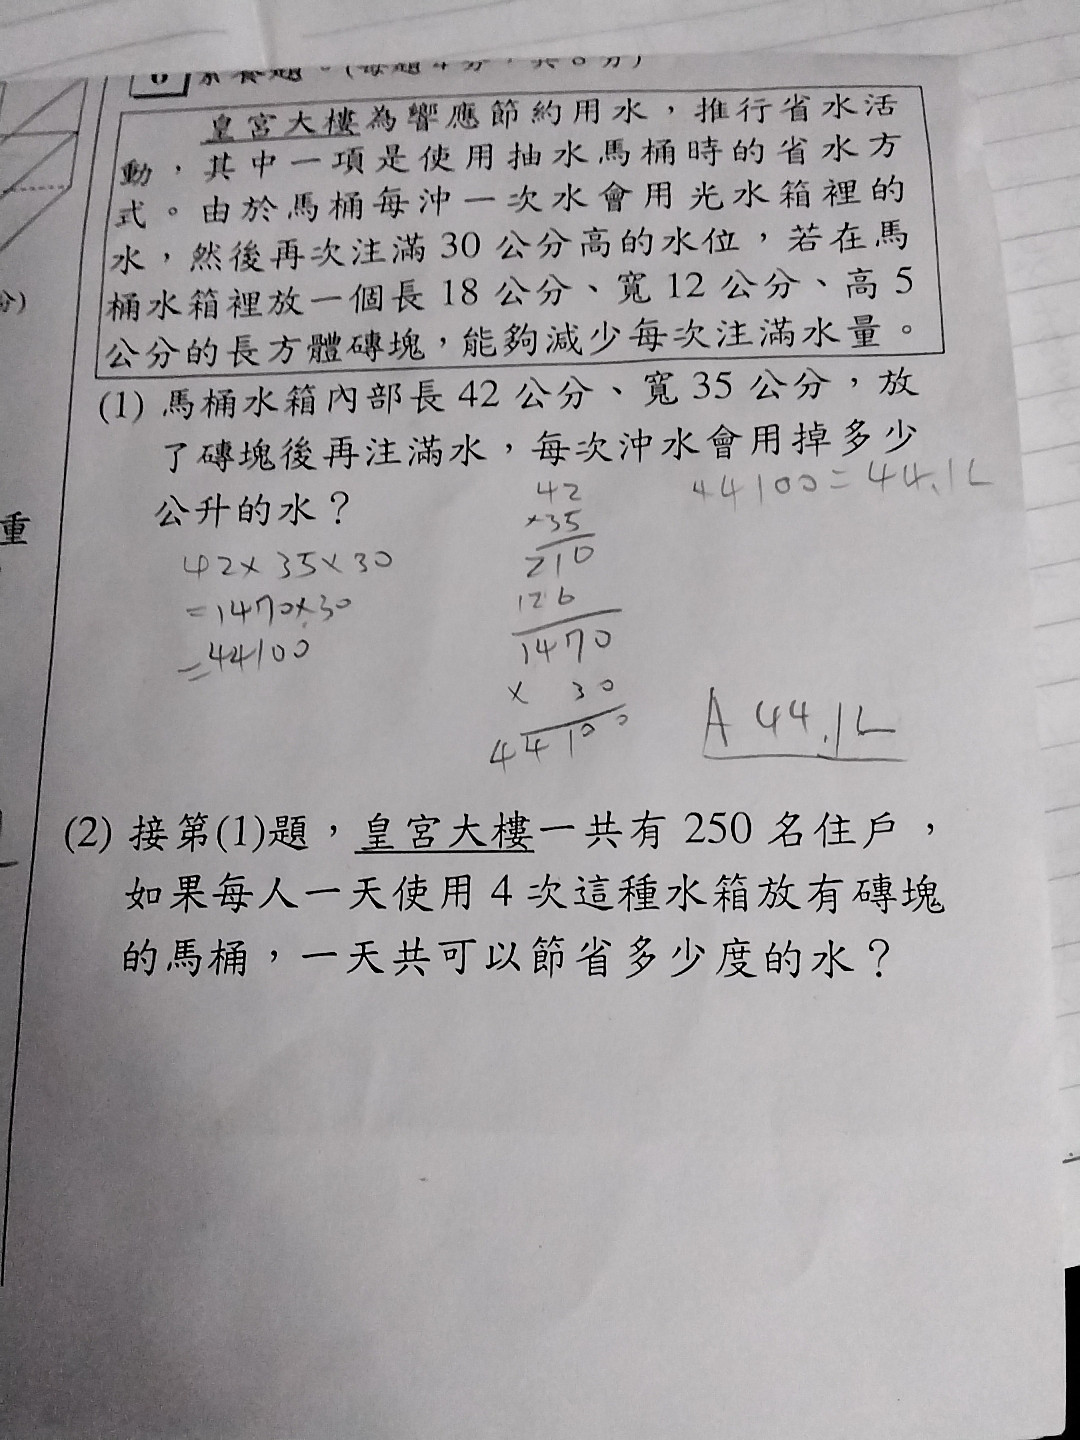 6 素養題。(每題4分,共8分)
皇宮大樓為響應節約用水,推行省水活
動,其中一項是使用抽水馬桶時的省水方
式。由於馬桶每沖一次水會用光水箱裡的
水,然後再次注滿 30 公分高的水位,若在馬
桶水箱裡放一個長 18 公分、寬 12 公分、高 5
公分的長方體磚塊,能夠減少每次注滿水量。
(1) 馬桶水箱內部長 42 公分、寬 35 公分,放
了磚塊後再注滿水,每次沖水會用掉多少
公升的水?
42×35×30
=1470×30
=44100
42
×35
210
126
1470
× 30
44100
44100=44.1L
A 44.1L
(2) 接第(1)題,皇宮大樓一共有 250 名住戶,
如果每人一天使用 4 次這種水箱放有磚塊
的馬桶,一天共可以節省多少度的水?
分)
重